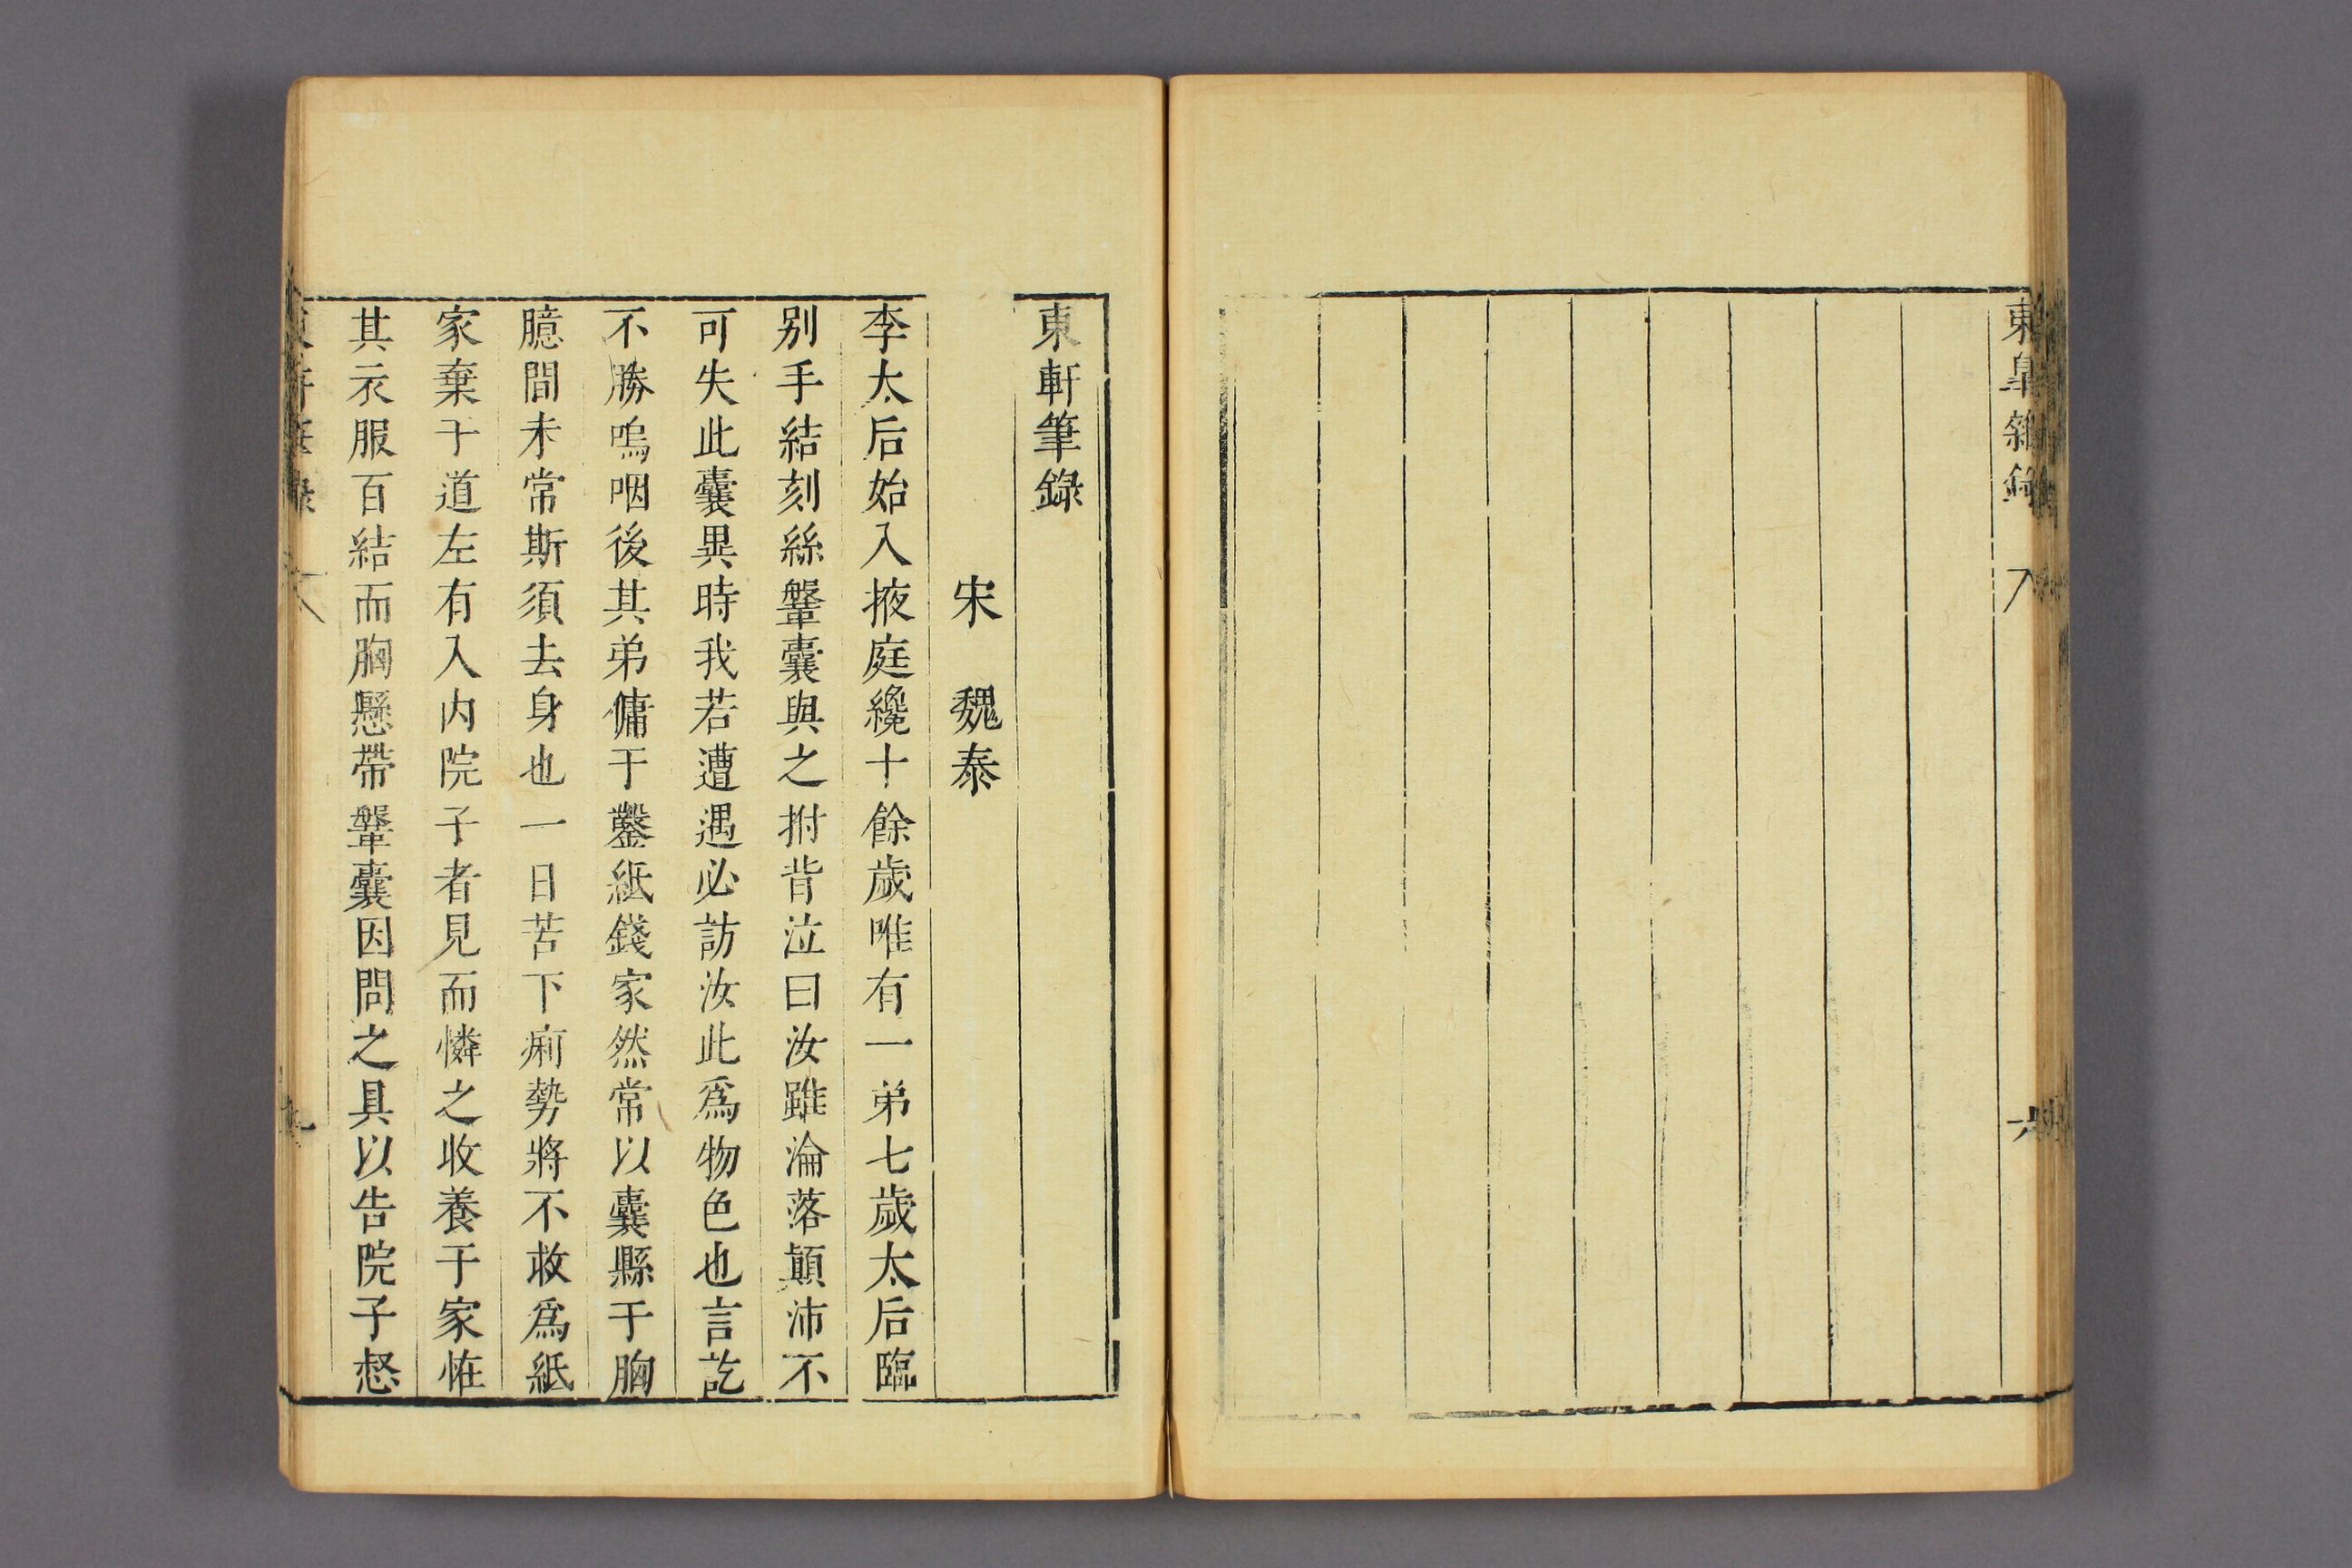 東皐雜錄
六
東軒筆錄
宋 魏泰
李太后始入掖庭纔十餘歲唯有一弟七歲太后臨
别手結刻絲鞶囊與之拊背泣曰汝雖淪落顛沛不
可失此囊異時我若遭遇必訪汝此爲物色也言訖
不勝嗚咽後其弟傭于鑿紙錢家然常以囊縣于胸
臆間未常斯須去身也一日苦下痢勢將不救爲紙
家棄于道左有入内院子者見而憐之收養于家恠
其衣服百結而胸懸帶鞶囊因問之具以告院子惄